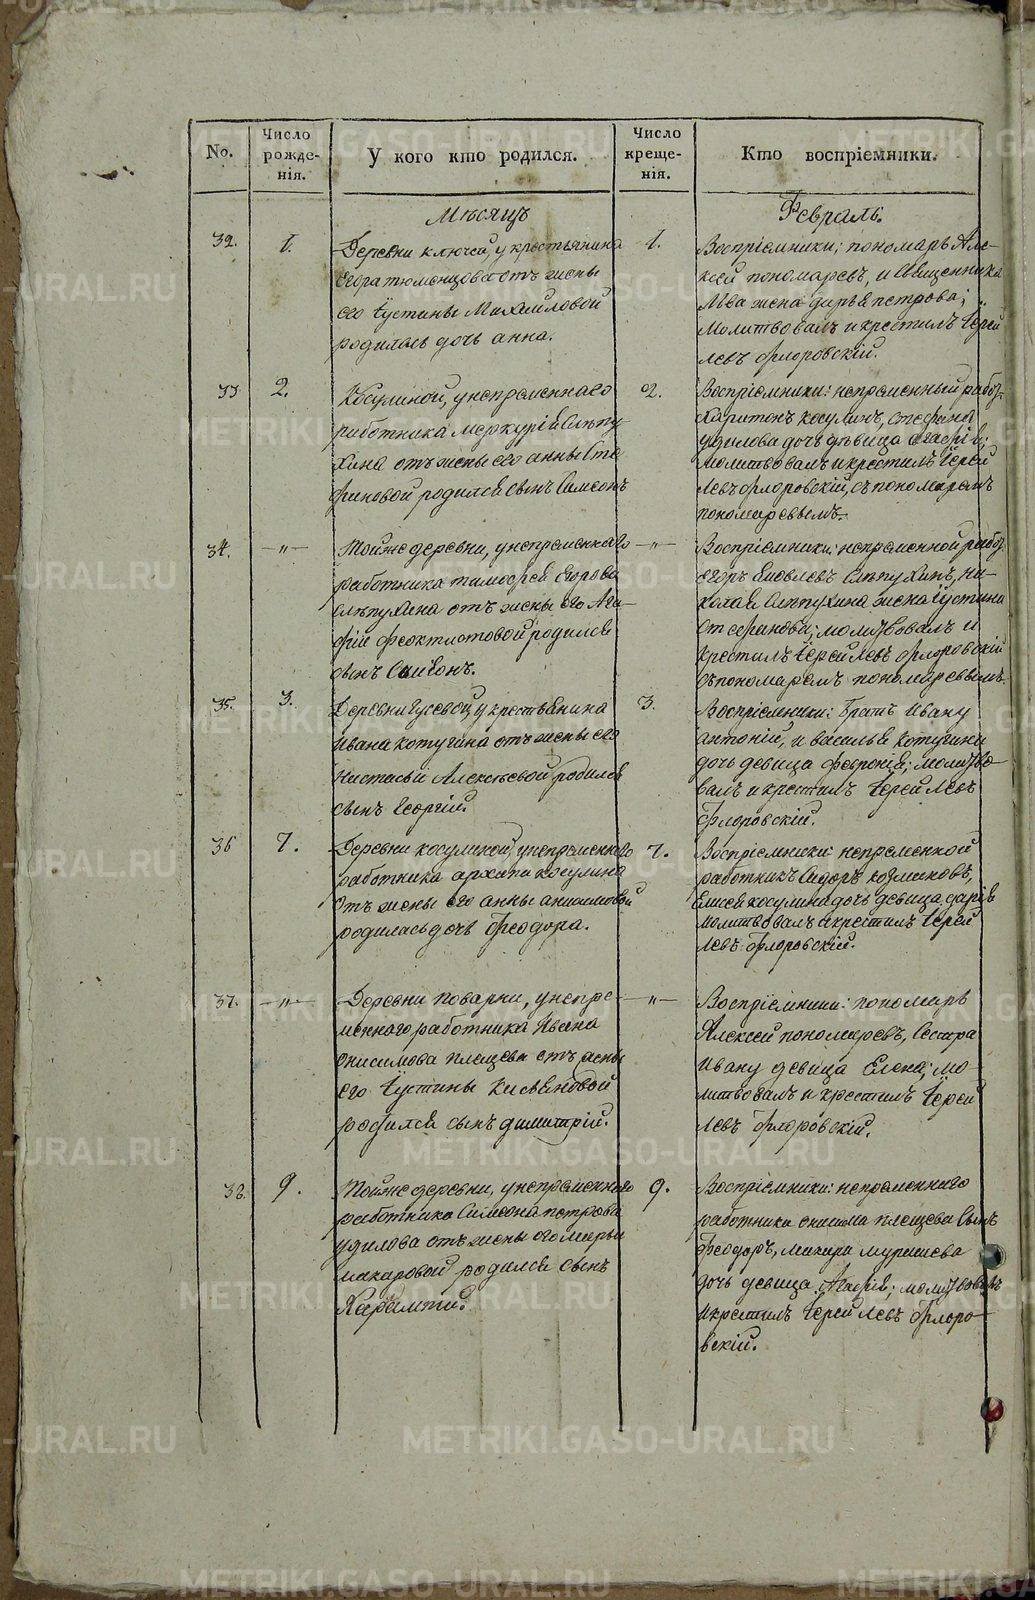 No.
Число рожде- нія.
У кого кто родился.
Число креще- нія.
Кто воспріемники.
Мѣсяцъ
Февраль.
32.
1.
Деревни ключей, у крестьянина
Егора тюменцова отъ жены
его Іустины Михайловой
родилась дочь анна.
1.
Воспріемники; пономарь Але-
ксей пономаревъ, и священника
Льва жена дарья петрова;
Молитвовалъ и крестилъ Іерей
левъ флоровскій.
33
2.
Косулиной, у непременнаго
работника меркурія слепу-
хина отъ жены его анны Сте
фановой родился сынъ Симеонъ
2.
Воспріемники: непременный работ.
Харитонъ косулинъ, стефана
удилова дочь дѣвица агафія;
молитвовалъ и крестилъ Іерей
Левъ флоровскій, съ пономаремъ
пономаревымъ.
34.
—"—
Тойже деревни, у непременнаго
работника тимофея Егорова
слепухина отъ жены его Ага-
фіи феоктистовой родился
сынъ Симеонъ.
—"—
Воспріемники: непременной работ.
егоръ яковлевъ слепухинъ, ни-
колая слепухина жена іустина
стефанова; молитвовалъ и
крестилъ Іерей Левъ флоровскій
съ пономаремъ пономаревымъ.
35.
3.
Деревни Гусевой, у крестьянина
ивана котугина отъ жены его
Настасьи Алексѣевой родился
сынъ Георгій.
3.
Воспріемники: братъ ивану
антоній, и василья котугина
дочь девица феврония; молитво-
валъ и крестилъ Іерей Левъ
Флоровскій.
36
7.
Деревни косулиной, у непременнаго
работника архипа косулина
отъ жены его анны анисимовой
родилась дочь Феодора.
7.
Воспріемники: непременной
работникъ Сидоръ
Елисея косулина дочь девица дарія
молитвовалъ и крестилъ Іерей
левъ флоровскій.
37.
—"—
Деревни поварни, у непре-
меннаго работника Ивана
онисимова плещева отъ жены
его Іустины
родился сынъ димитрій.
—"—
Воспріемники: пономарь
Алексей пономаревъ, Сестра
ивану девица Елена; мо-
литвовалъ и крестилъ Іерей
левъ флоровскій.
38.
9.
Тойже деревни, у непременнаго
работника Симеона петрова
удилова отъ жены его марьи
макаровой родился сынъ
Харлампій.
9.
Воспріемники: непременнаго
работника онисима плещева Сынъ
феодоръ, макара
дочь девица Агафія; молитвовалъ
и крестилъ Іерей Левъ Флоро-
вскій.
METRIKI.GASO-URAL.RU